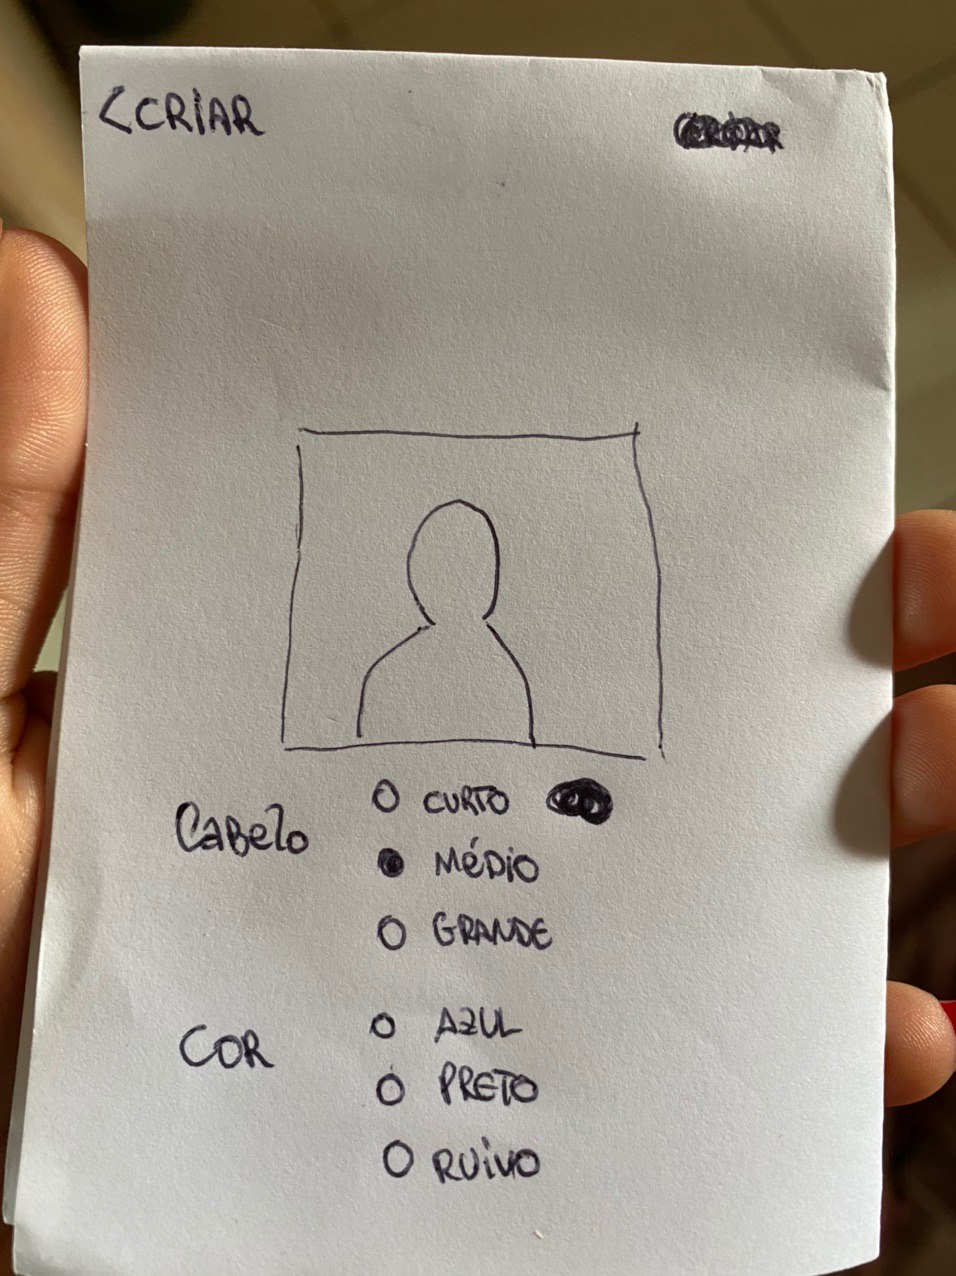 <CRIAR
Cabelo
CURTO
MÉDIO
GRANDE
COR
AZUL
PRETO
RUIVO